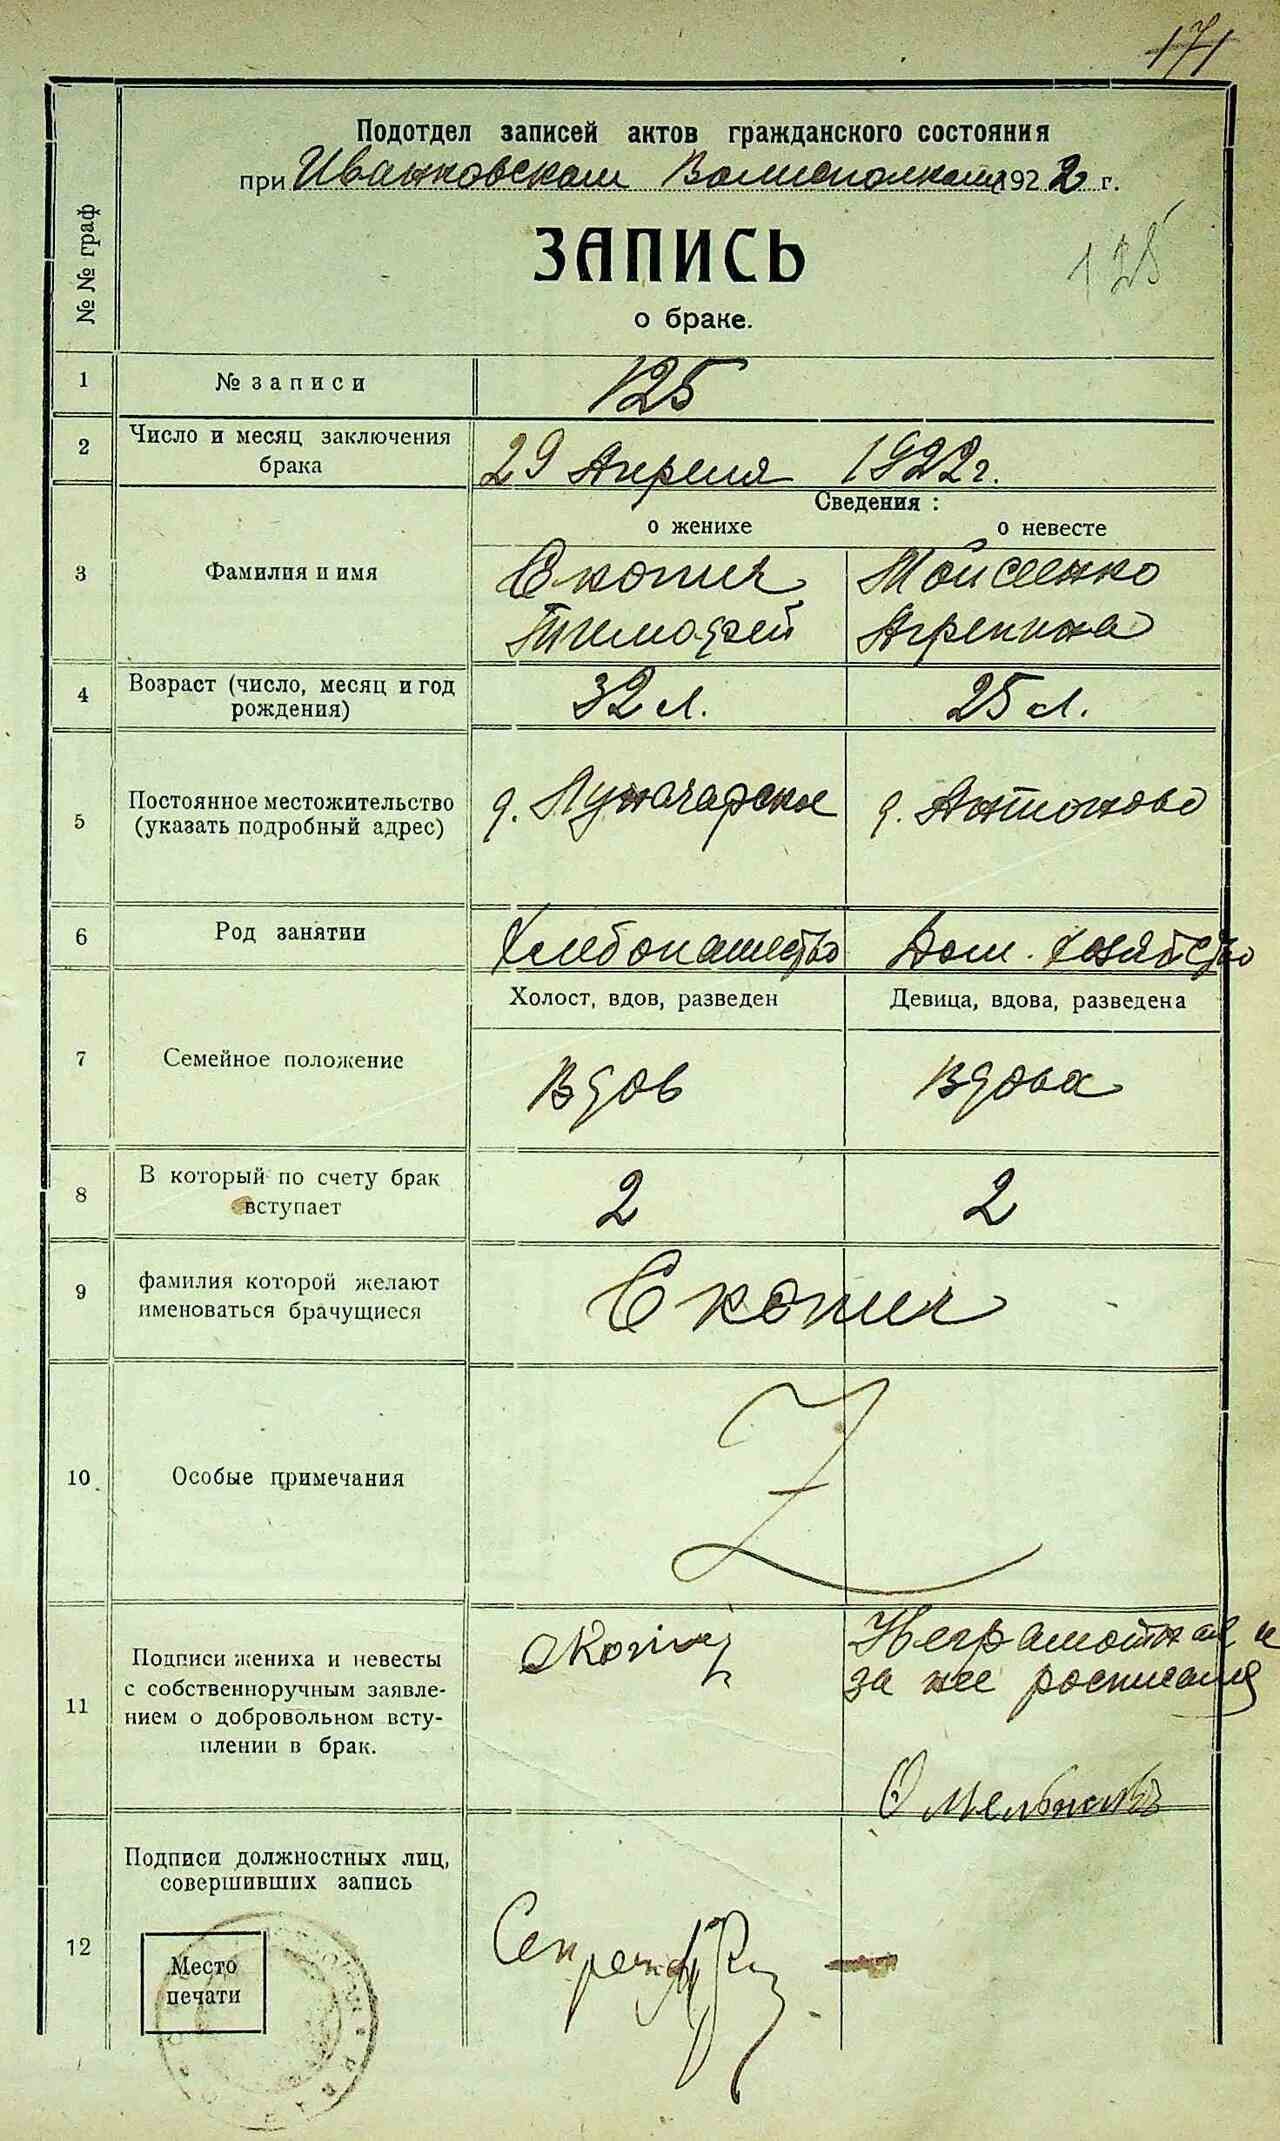 171
Подотдел записей актов гражданского состояния
при Иванковском Волисполкоме 1922 г.
№ № граф
ЗАПИСЬ
128
о браке.
1 № записи 125
2 Число и месяц заключения брака 29 Апреля 1922 г.
Сведения :
о женихе о невесте
3 Фамилия и имя Скопич Мойсеенко
Тимофей Агрепина
4 Возраст (число, месяц и год рождения) 32 л. 25 л.
5 Постоянное местожительство
(указать подробный адрес) д. Луначарское д. Антоново
6 Род занятии Хлебопашество Дом. Хозяйство
Холост, вдов, разведен Девица, вдова, разведена
7 Семейное положение Вдов Вдова
8 В который по счету брак
вступает 2 2
9 фамилия которой желают
именоваться брачущиеся Скопич
10 Особые примечания
11 Подписи жениха и невесты
с собственноручным заявле-
нием о добровольном всту-
плении в брак.
Скопич Неграмотная и
за нее росписался
12 Подписи должностных лиц,
совершивших запись
Место
печати